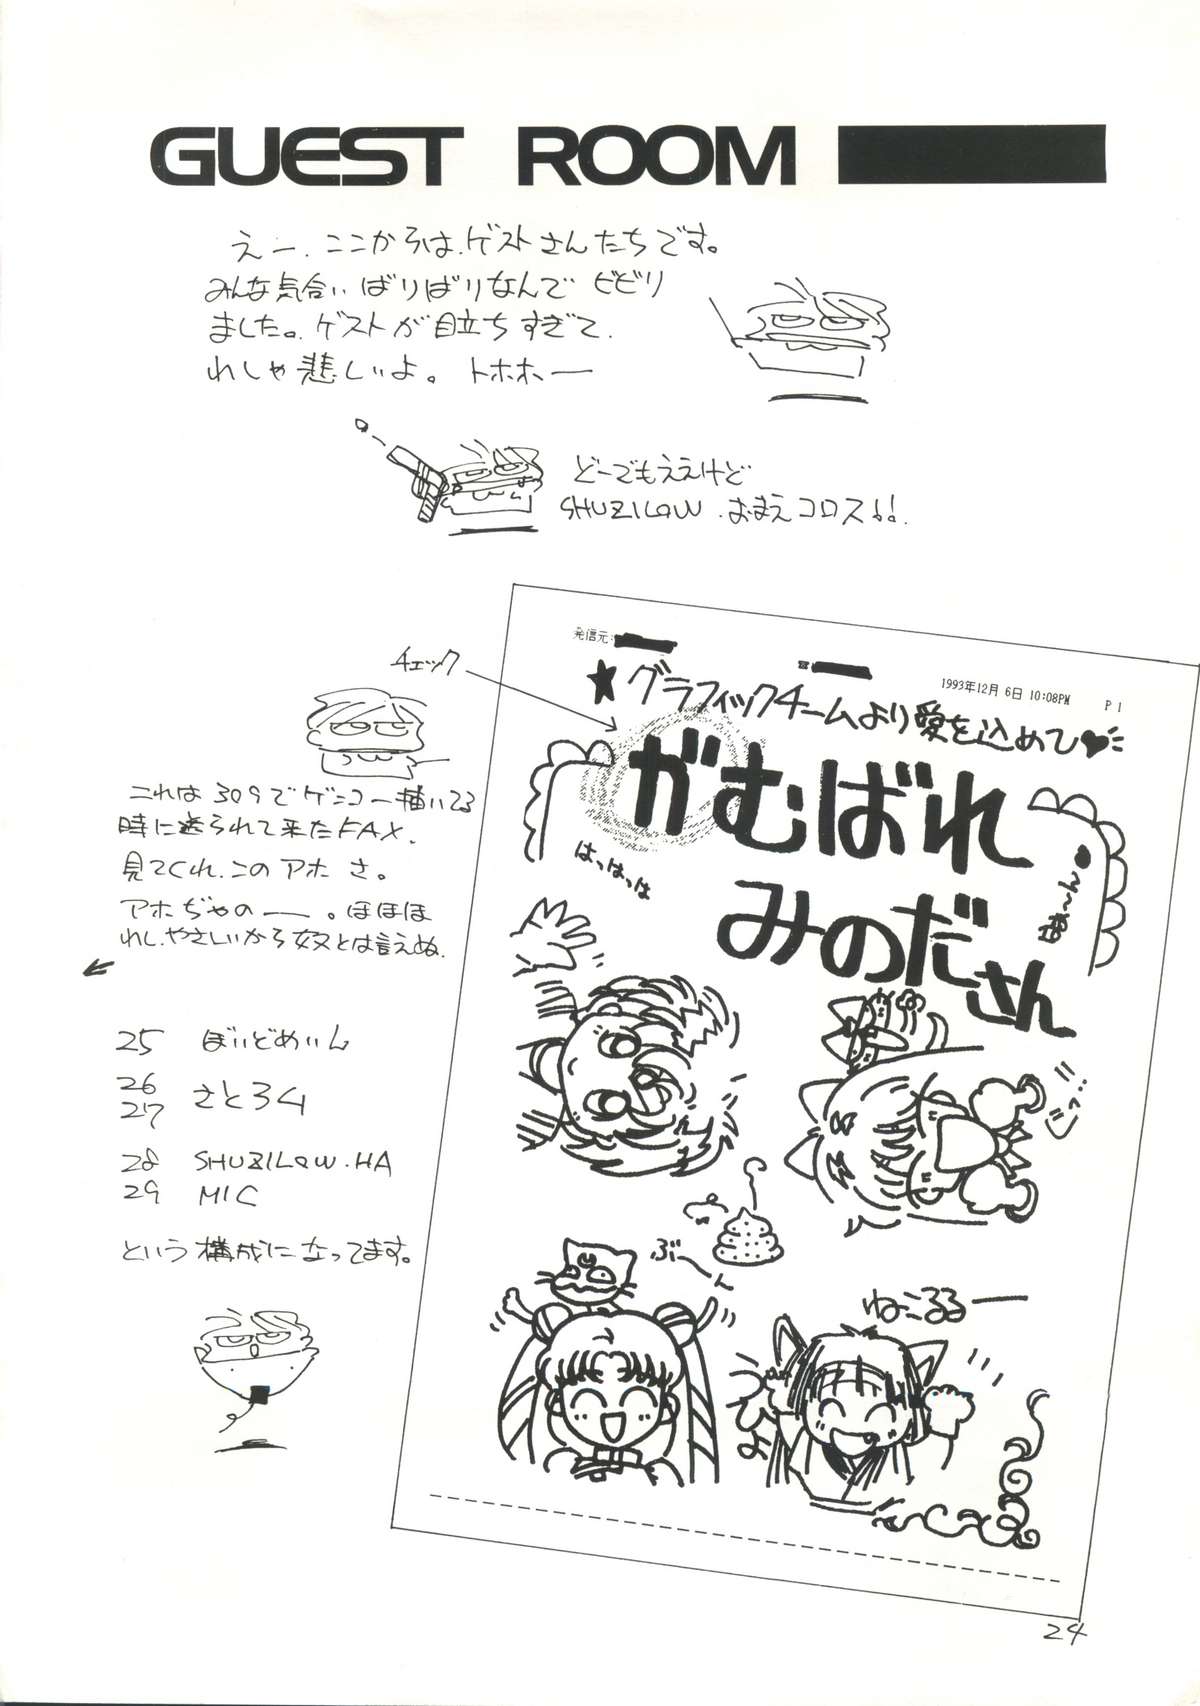 GUEST ROOM
えー、ここからは、ゲストさんたちです。
みんな気合い ばりばりなんで ビビリ
ました。ゲストが目立ちすぎて、
わしゃ悲しいよ。 トホホー
どーでもええけど
SHUZILOW、おまえコロス!!
発信元:
1993年12月 6日 10:08PM P 1
チェック
★グラフィックチームより愛を込めて♥
がむばれ
みのださん
はっはっは
これは 309でゲンコー描いてる
時に送られて来たFAX.
見てくれ、このアホ さ。
アホぢゃのー。ほほほ
わし、やさしいから 奴とは言えぬ.
25 ぼいどめいん
26
27 さとろム
28 SHUZILOW.HA
29 MIC
という構成になってます。
ぶーん
ねこるるー
24